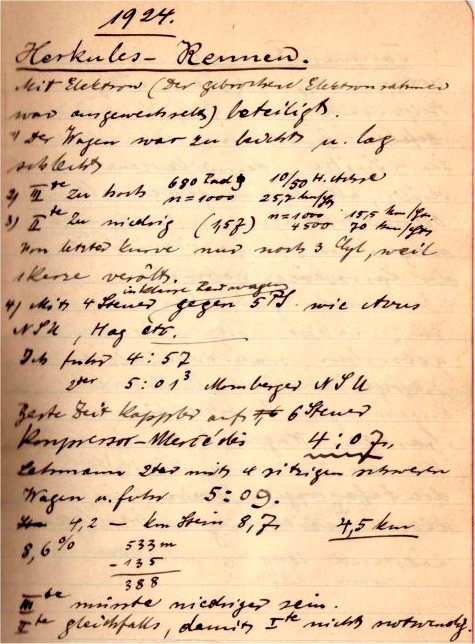 1924.
Herkules-Rennen.
Mit Elektron (Der gebrochene Elektronrahmen
war ausgewechselt) beteiligt.
1) Der Wagen war zu leicht u. lag
schlecht
2) III te zu hoch 680 Rad 10/50 H. Achse
n = 1000 25,7 km/St
3) II te zu niedrig (1,57) n = 1000 15,5 km/St.
4500 70 km/St
Von letzter Kurve nur noch 3 Cyl, weil
Kerze verölt.
in Klasse Rennwagen
4) Mit 4 Steuer gegen 5 PS. wie Avus
NSU, Hag etc.
Ich fuhr 4:57
2ter 5:01³ Momberger NSU
Beste Zeit Kappler auf 6 Steuer
Kompressor-Mercédes 4:07,
Lehmann 2ter mit 4 sitzigen schweren
Wagen u. fuhr 5:09.
4,2 - km Stein 8,7, 4,5 km
8,6% 533 m
- 135
388
III te müsste niedriger sein.
II te gleichfalls, damit I te nicht notwendig